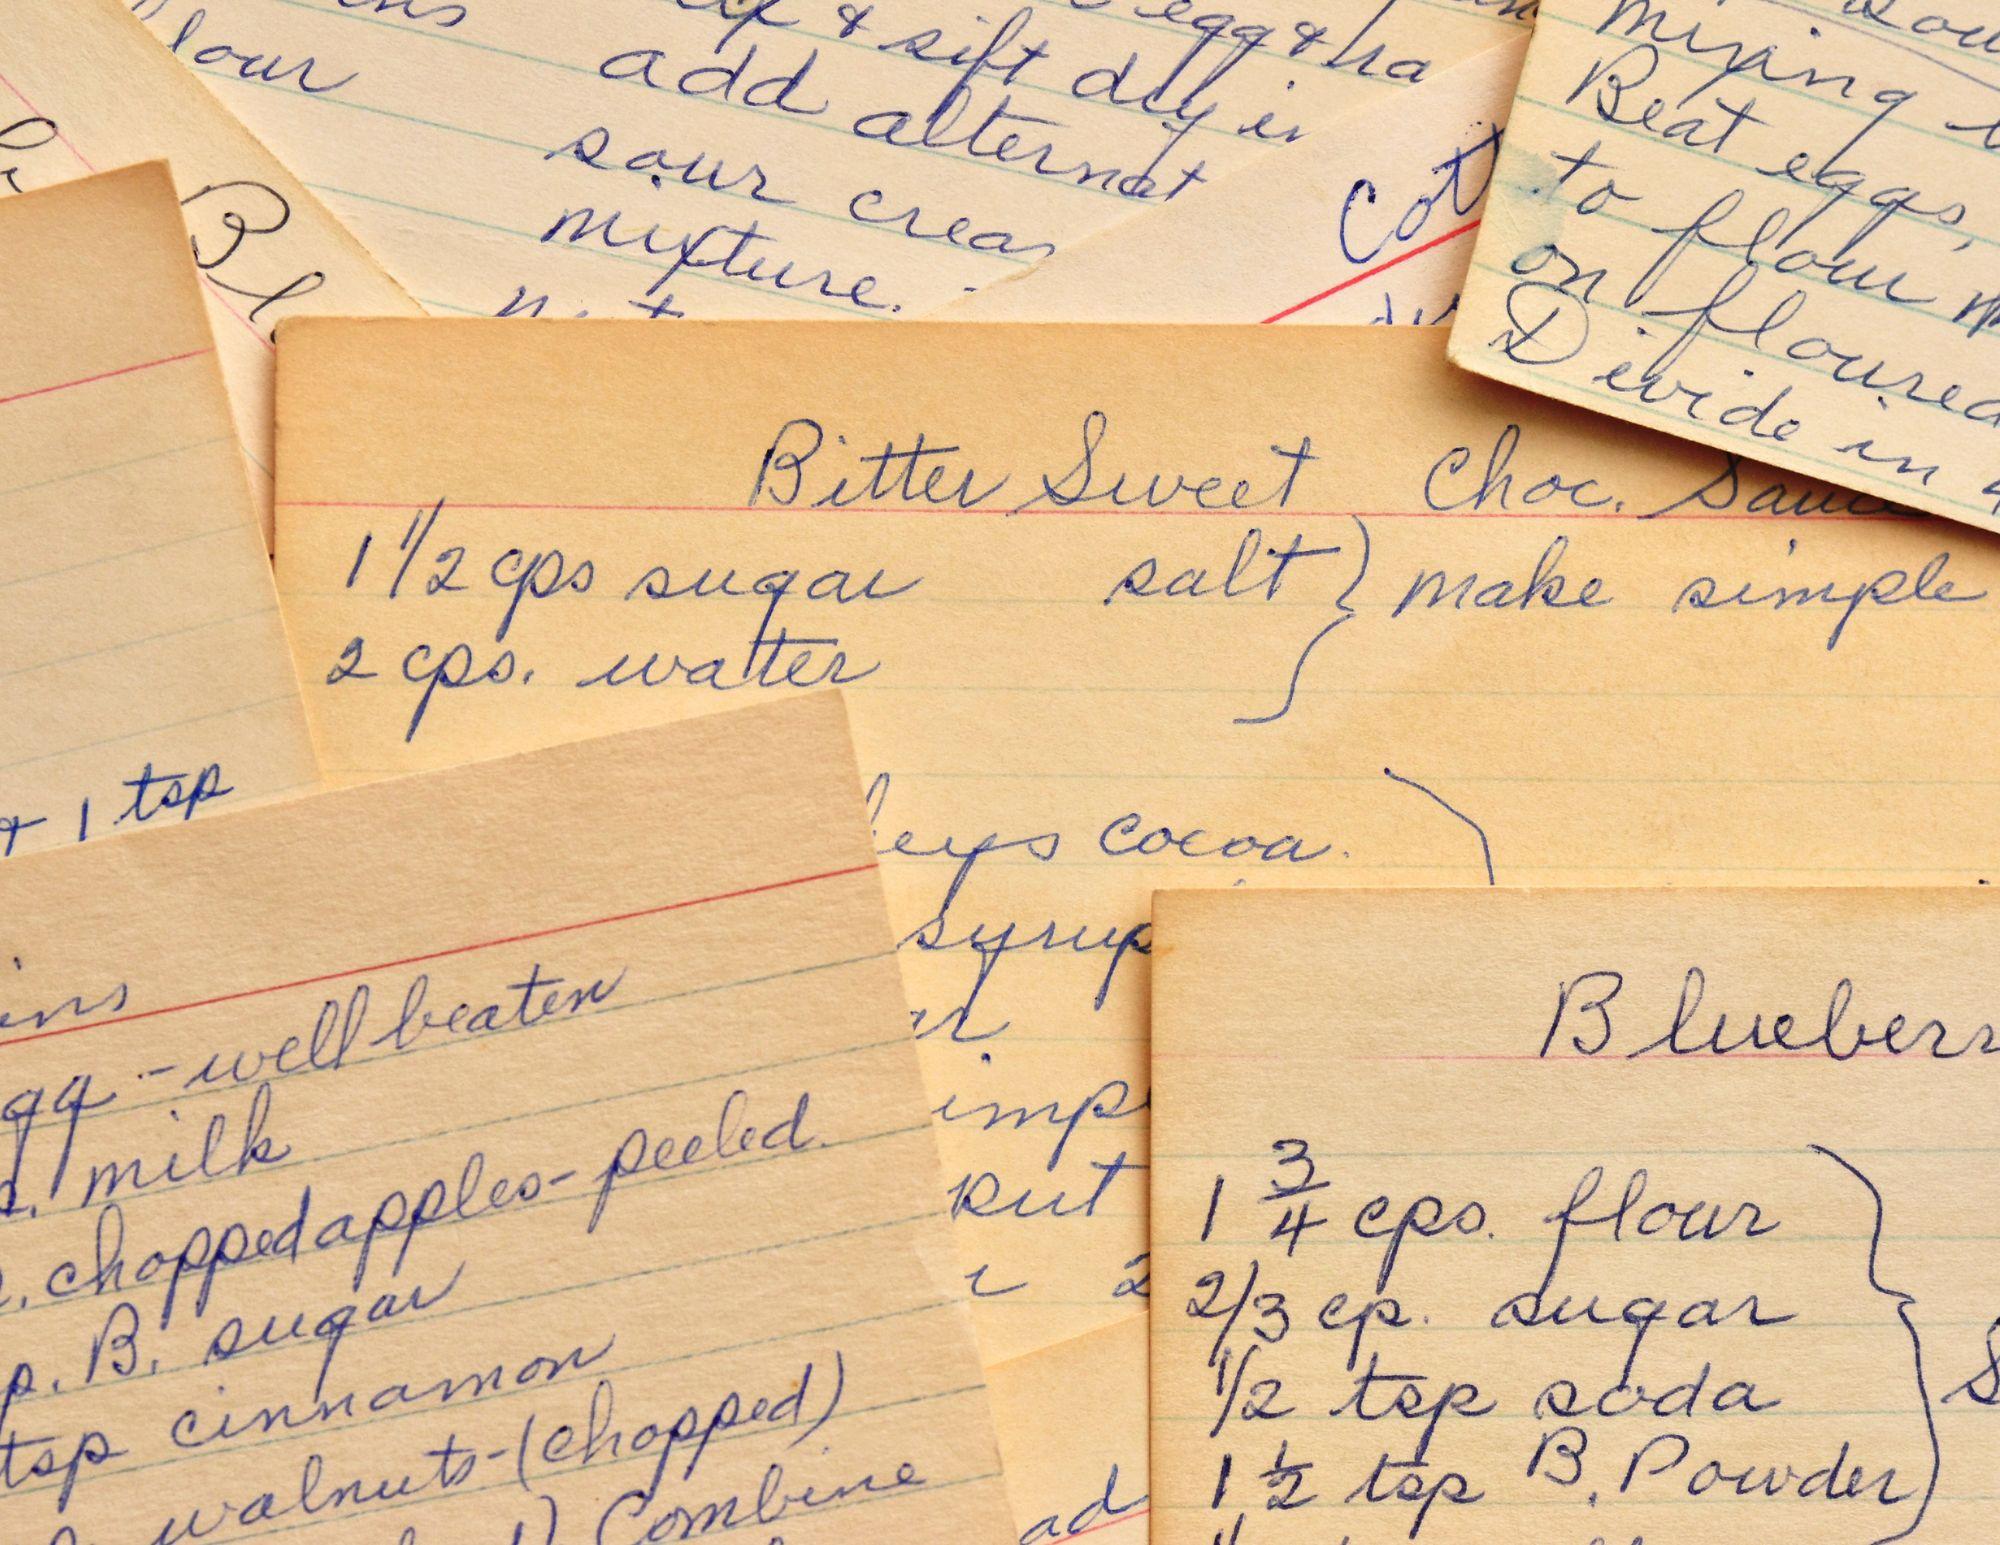 lour
& sift dry in
add alternat
sour crea
mixture.
egg &
Cot
mixing
Beat eggs,
to flour m
on floured
Divide in 4
Bl
Bitter Sweet Choc. Sauce
1 1/2 cps sugar salt } make simple
2 cps. water
eys cocoa.
syrup
imp
put
2
& 1 tsp
ins
gg - well beaten
milk
chopped apples - peeled
p. B. sugar
tsp cinnamon
walnuts - (chopped)
Combine
ad
Blueberr
1 3/4 cps. flour
2/3 cp. sugar
1/2 tsp soda
1 1/2 tsp B. Powder
S